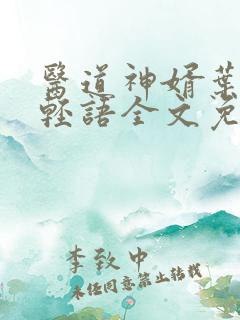 醫道神婿葉
輕語全文免
李致中
未经同意禁止转载